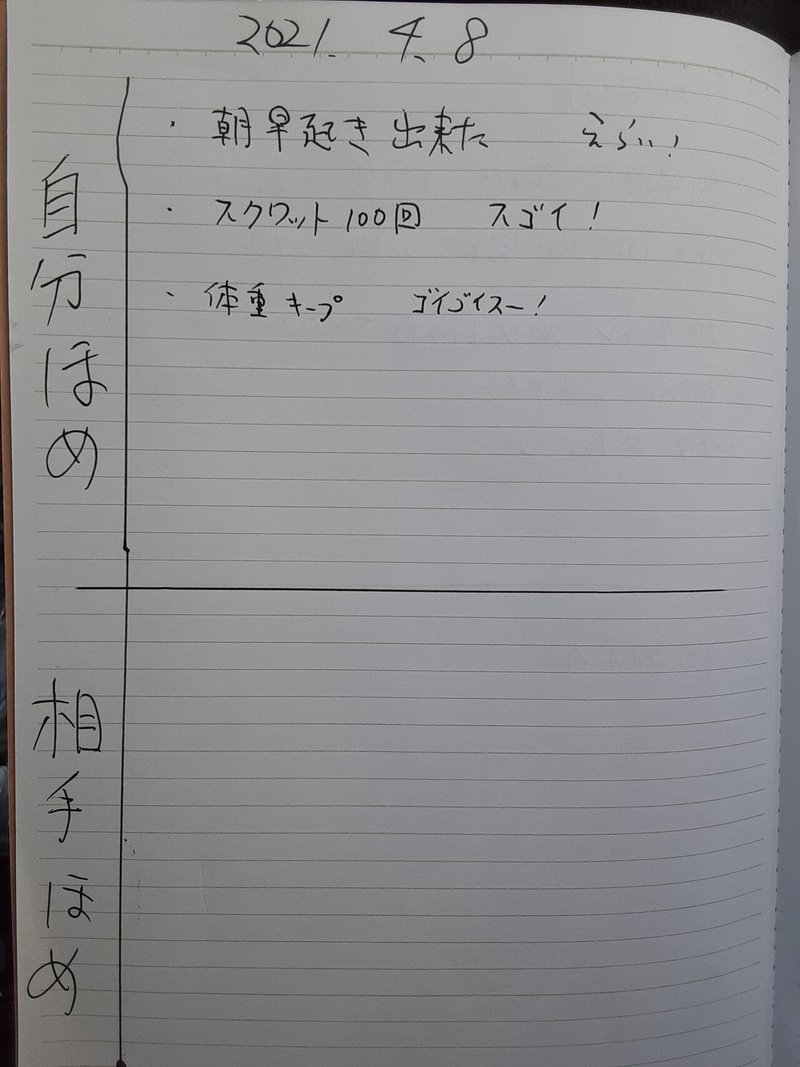 2021. 4. 8
自分ほめ
・ 朝早起き出来た えらい!
・ スクワット100回 スゴイ!
・ 体重キープ ゴイゴイスー!
相手ほめ